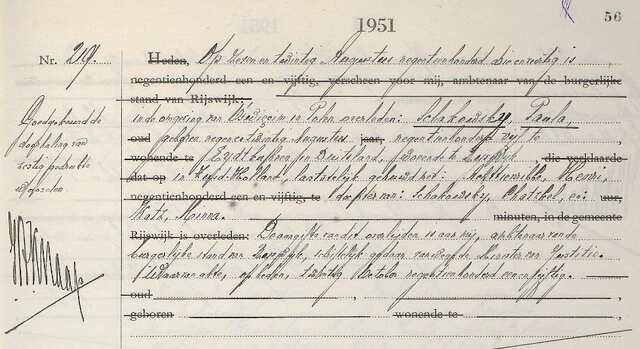 1951
56
Nr. 219.
Heden, Op zes en twintig Augustus negentienhonderd drie en veertig is
negentienhonderd een en vijftig, verscheen voor mij, ambtenaar van de burgerlijke
stand van Rijswijk,
in de omgeving van in Polen overleden: Schakowsky, Paula,
oud geboren negen en twintig Augustus jaar, negentienhonderd vijf te
wonende te in Duitsland, gewoond te Rijswijk, die verklaarde
dat op in Zuid-Holland, laatstelijk gehuwd met: Henri,
negentienhonderd een en vijftig, te dochter van: Schakowsky, en uur,
Katz, Minna. minuten, in de gemeente
Rijswijk is overleden: De aangifte van dit overlijden is aan mij, ambtenaar van de
burgerlijke stand van Rijswijk, schriftelijk gedaan vanwege de Minister van Justitie.
Waarvan akte, op heden, twintig October negentienhonderd een en vijftig.
oud
geboren wonende te
Goedgekeurd de
doorhaling van
zestig gedrukte
woorden.